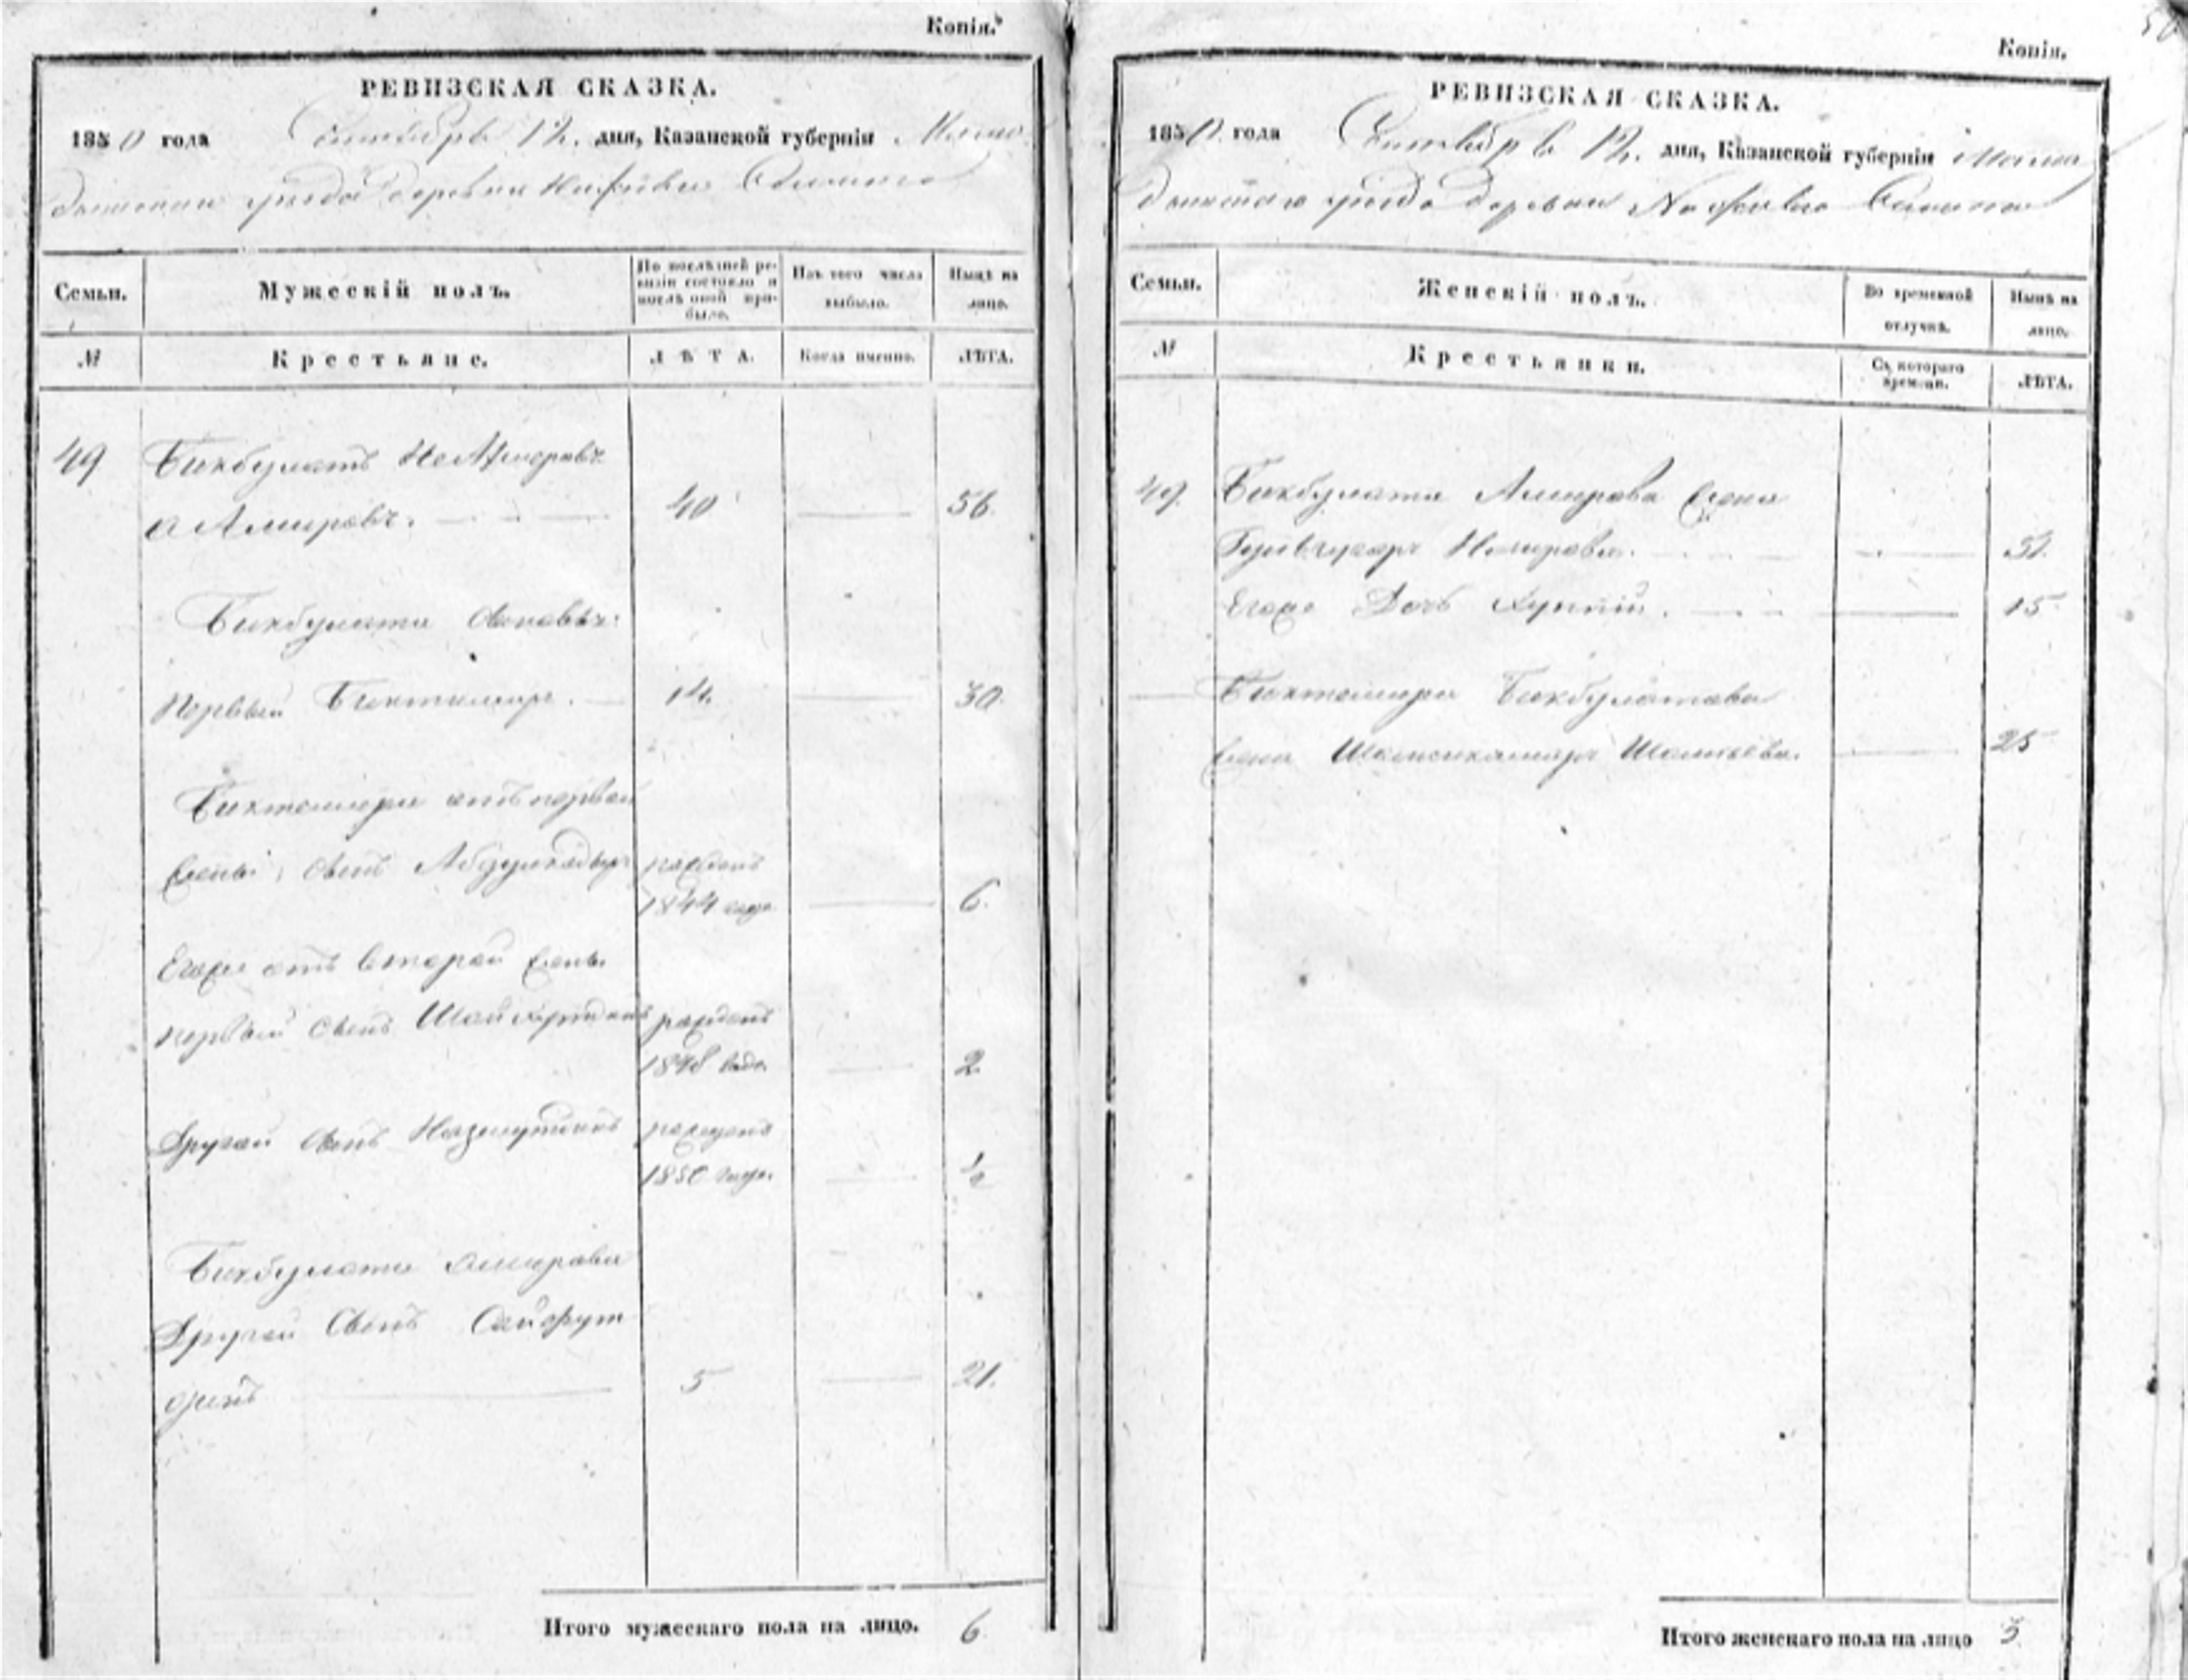 Копія.
РЕВИЗСКАЯ СКАЗКА.
1850 года Сентября 12. дня, Казанской губерніи Мама
дышскаго уѣзда деревни
Семьи.
Мужескій полъ.
По послѣдней ре-
визіи состояло и
послѣ оной при-
было.
Изъ того числа
выбыло.
Нынѣ на
лицо.
№
Крестьяне.
ЛѢТА.
Когда именно.
ЛѢТА.
49 Бикбулатъ
Амировъ. 40 56.
Бикбулата
первый Биктимир. 14. 30.
Биктемира отъ первой
жены сынъ Абдулкадыръ рожденъ
1844 года 6.
Егоже отъ второй жены
первый сынъ рожденъ
1848 года. 2
Другой сынъ рожденъ
1850 года. ½
Бикбулата Амирова
Другой Сынъ Сайфут
динъ 5 21.
Итого мужескаго пола на лицо. 6
Копія.
РЕВИЗСКАЯ СКАЗКА.
1850 года Сентября 12. дня, Казанской губерніи Мама
дышскаго уѣзда деревни
Семьи.
Женскій полъ.
Во временной
отлучкѣ.
Нынѣ на
лицо.
№
Крестьянки.
Съ котораго
времени.
ЛѢТА.
49. Бикбулата Амирова жена
51.
Егоже Дочь 15
Биктемира Бикбулатова
жена 25
Итого женскаго пола на лицо 3.